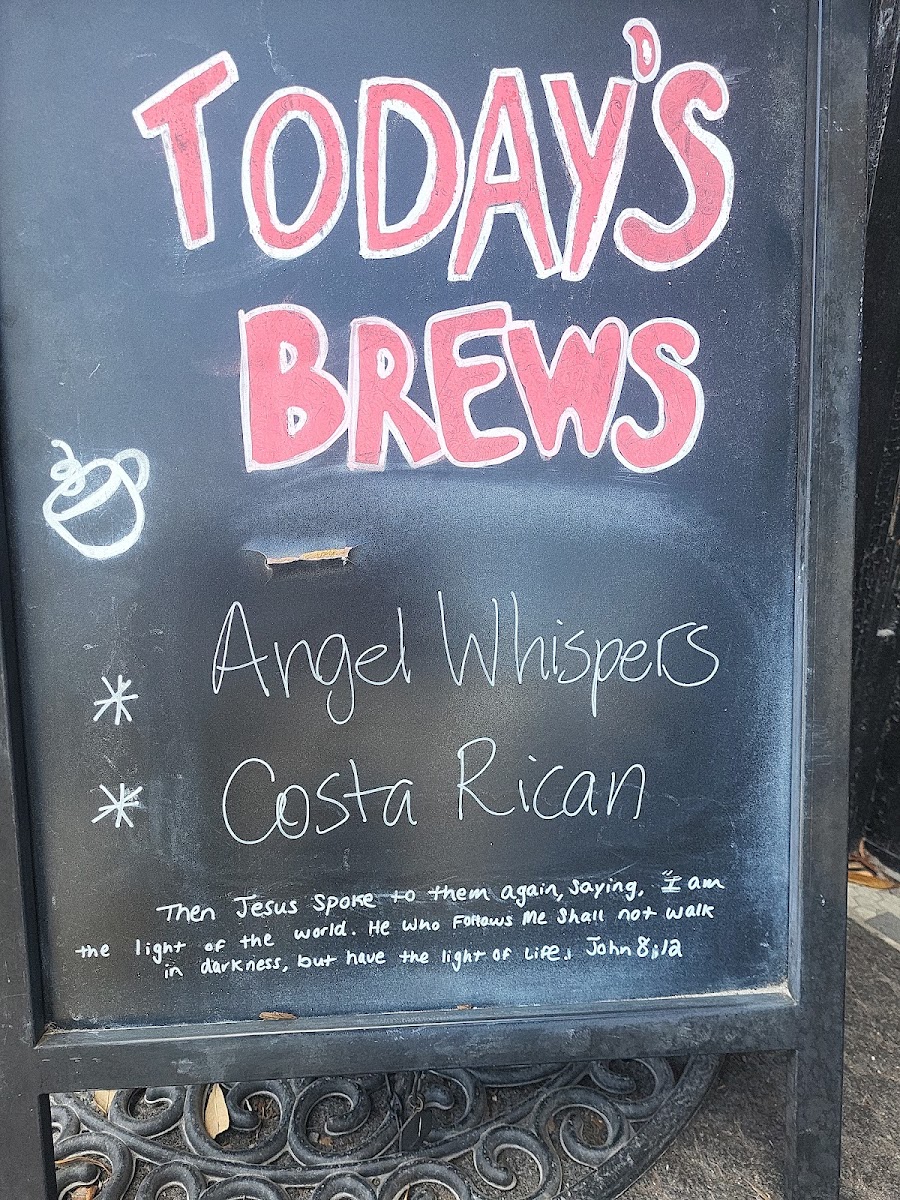 TODAY'S
BREWS
Angel Whispers
Costa Rican
Then Jesus spoke to them again, saying, "I am
the light of the world. He who Follows Me shall not walk
in darkness, but have the light of Life, John 8:12